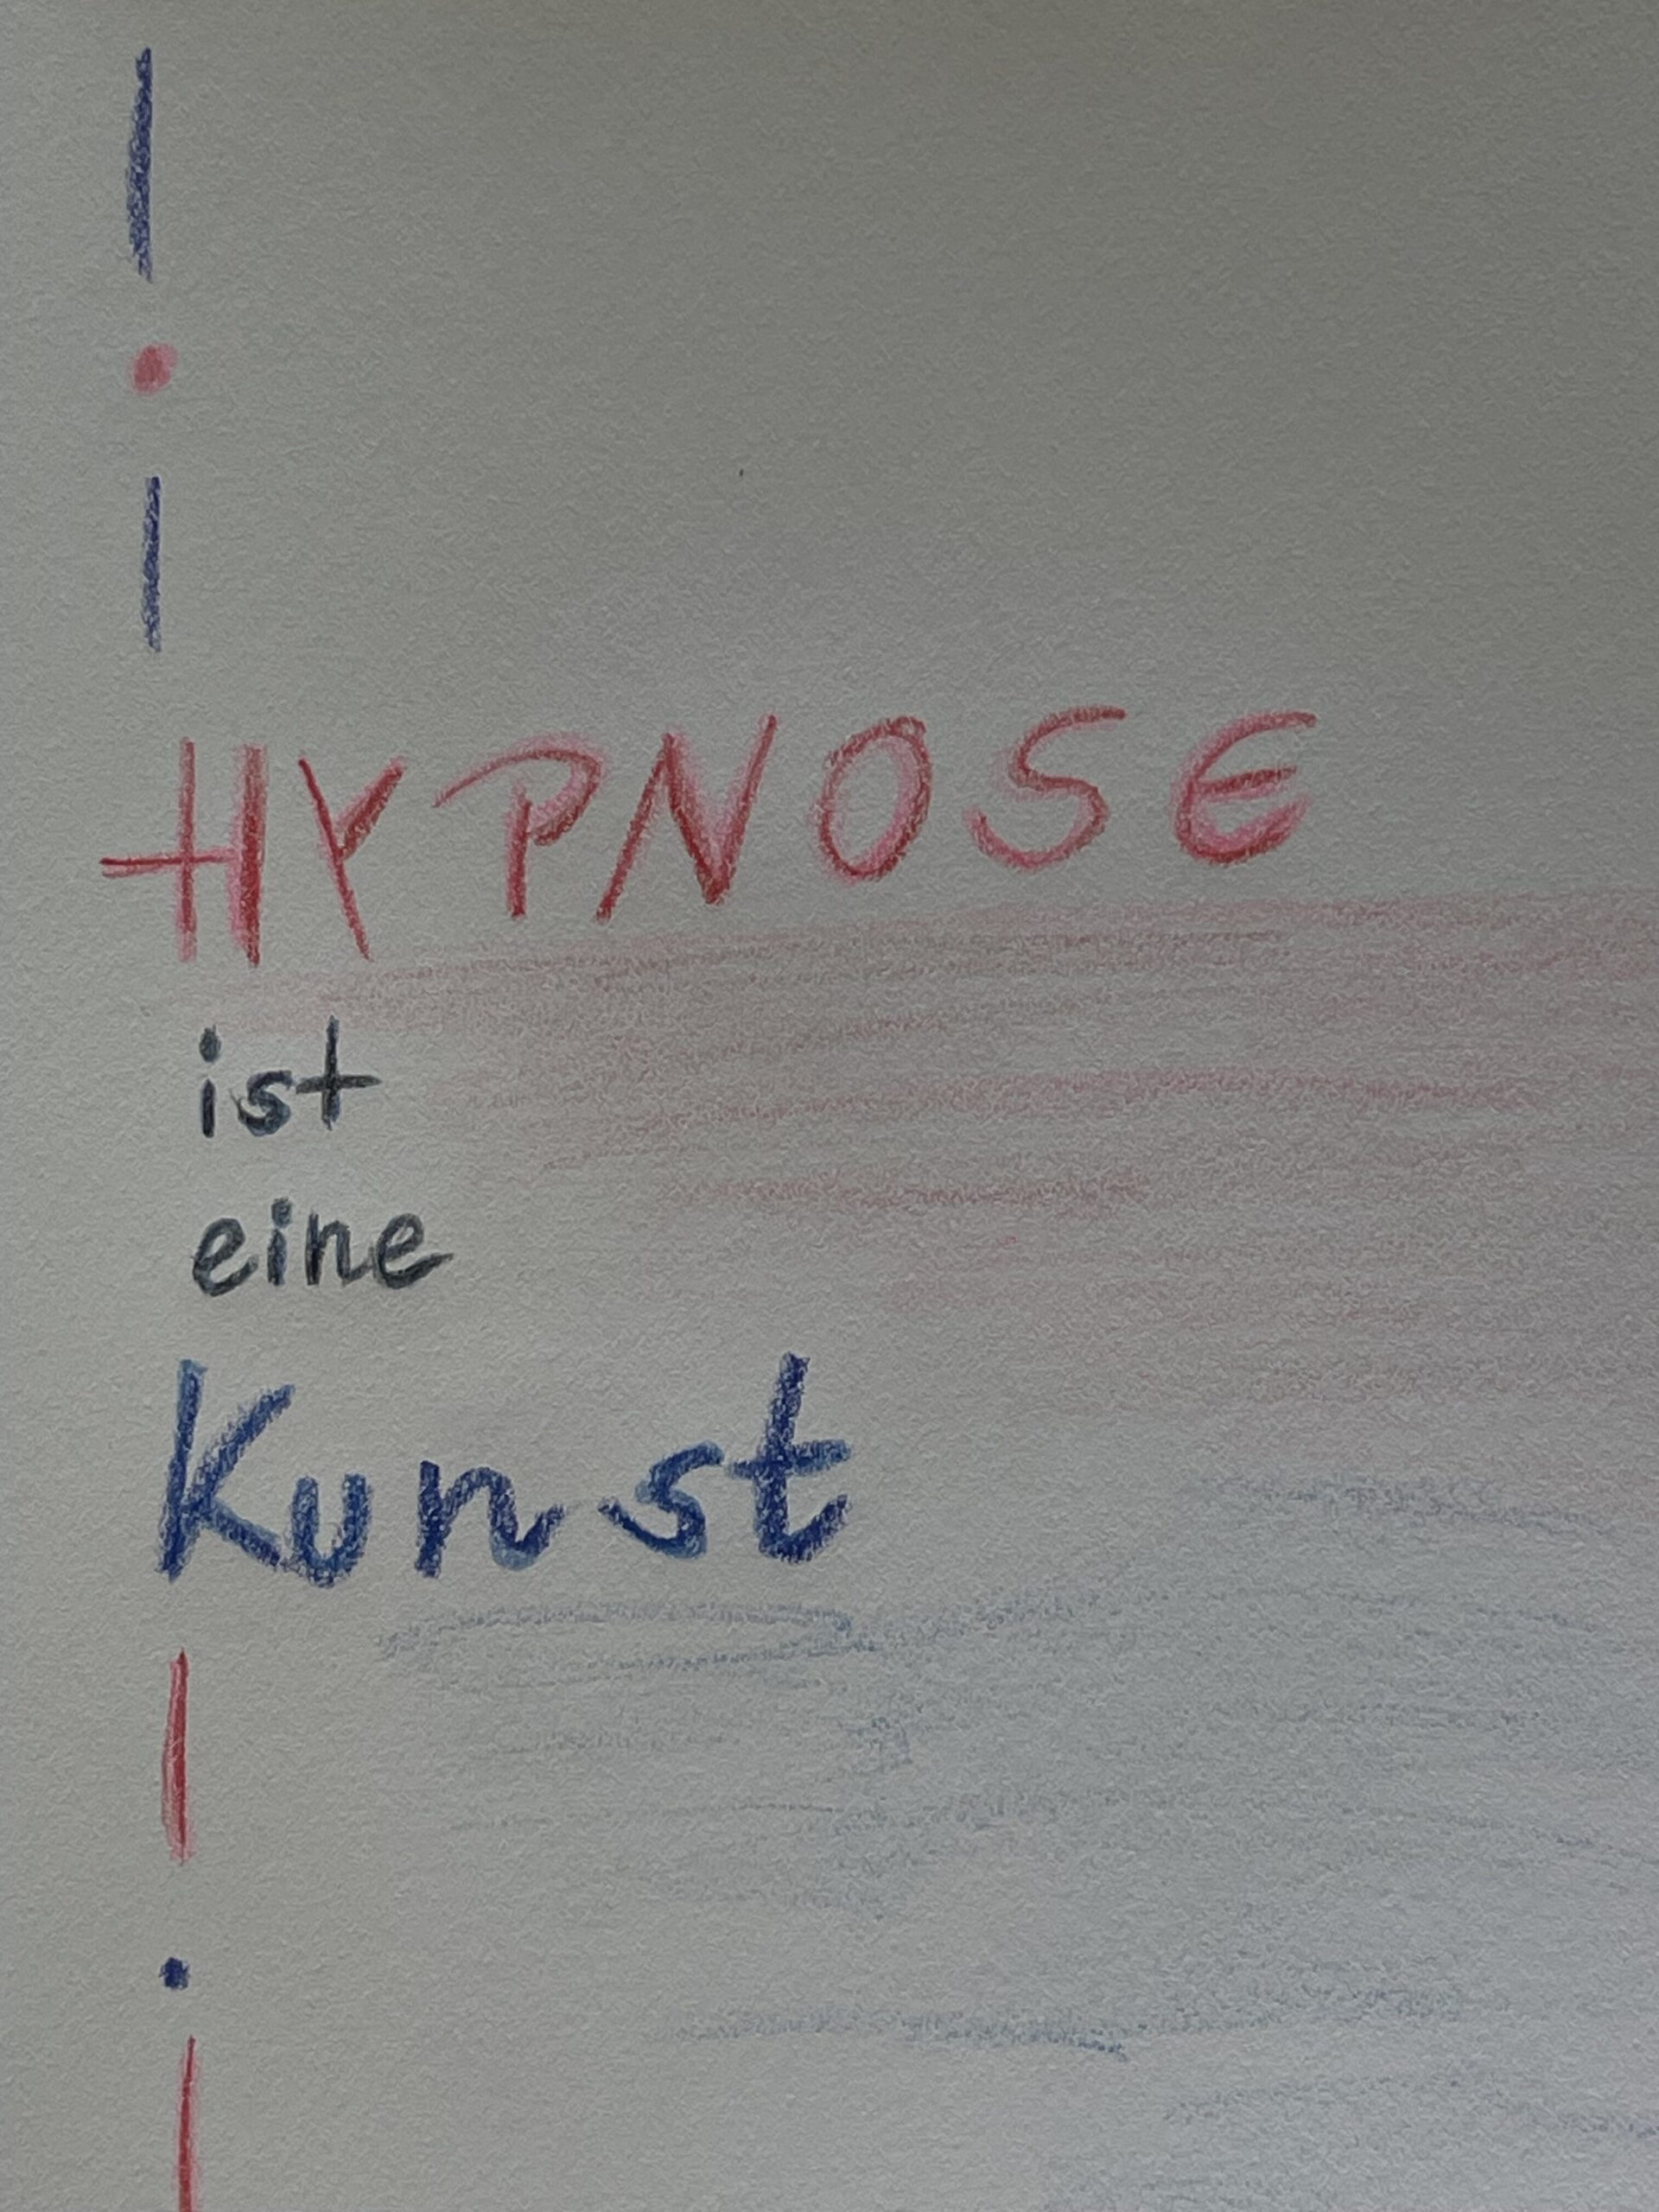 HYPNOSE
ist
eine
Kunst